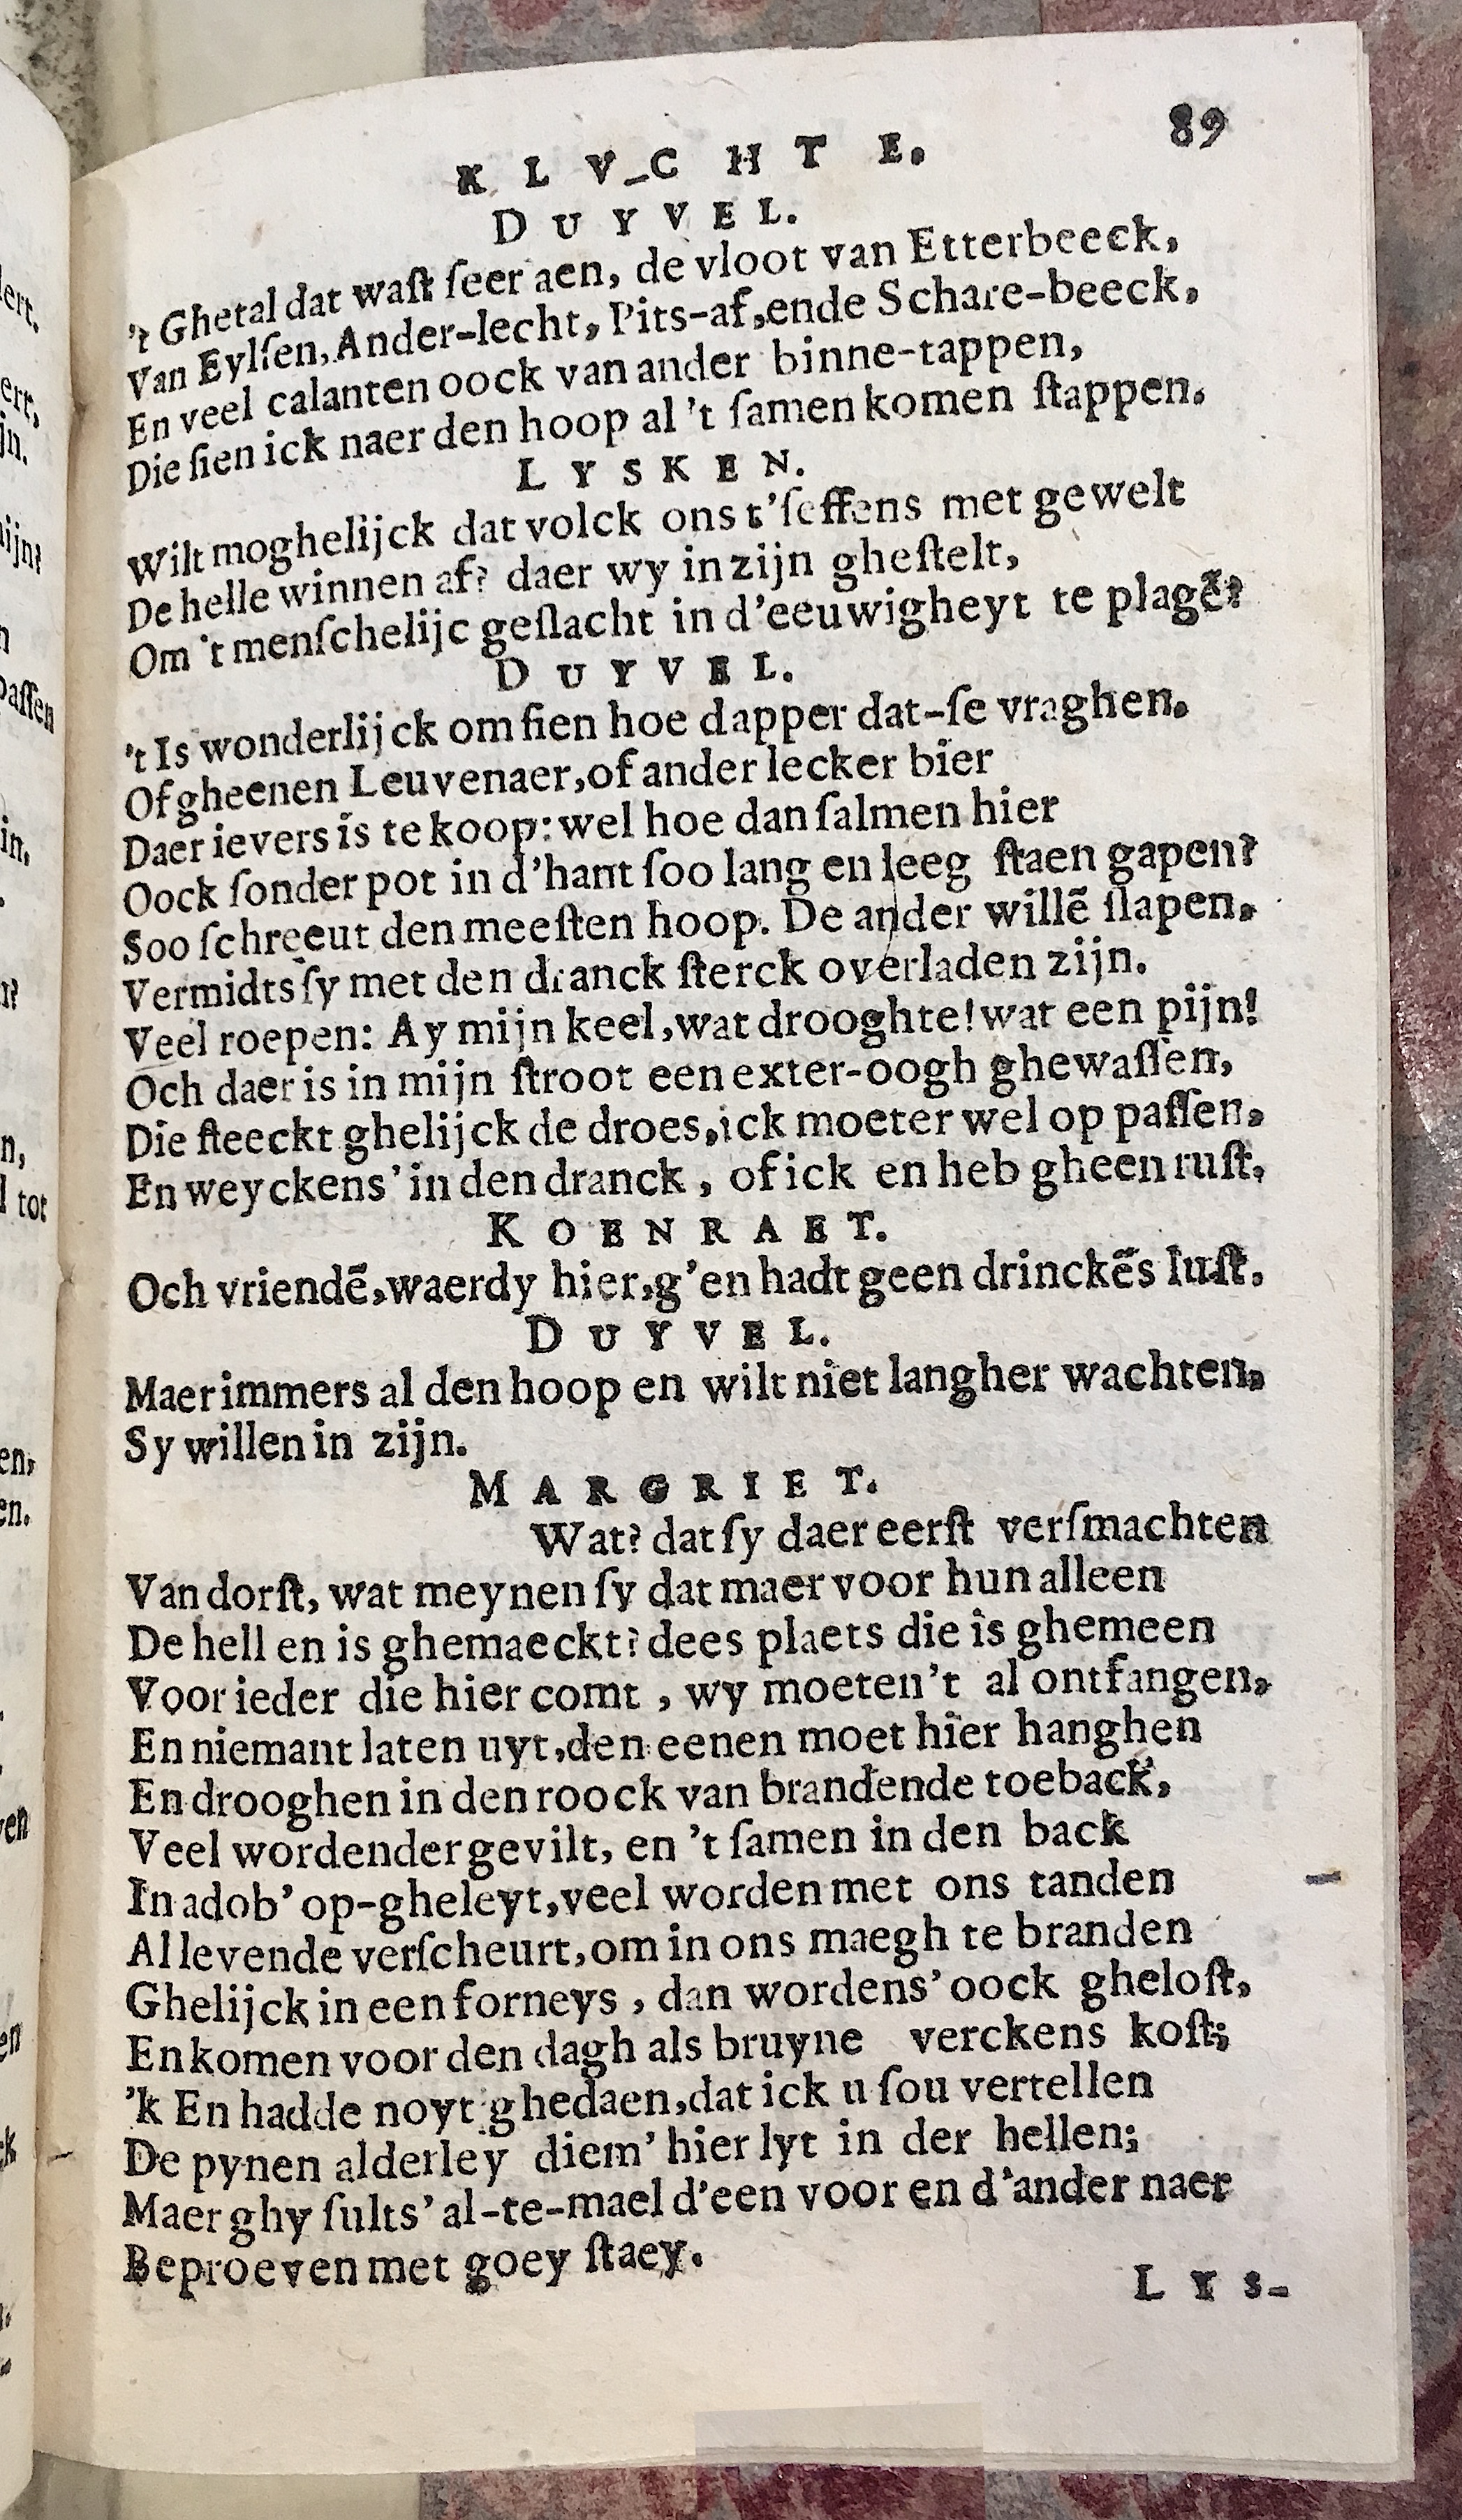 89
KLVCHTE.
DUYVEL.
't Ghetal dat waſt ſeer aen, de vloot van Etterbeeck,
Van Eylſen, Ander-lecht, Pits-af, ende Schare-beeck,
En veel calanten oock van ander binne-tappen,
Die ſien ick naer den hoop al 't ſamen komen ſtappen.
LYSKEN.
Wilt moghelijck dat volck ons t'ſeffens met gewelt
De helle winnen af? daer wy in zijn gheſtelt,
Om 't menſchelijc geſlacht in d'eeuwigheyt te plagē?
DUYVEL.
't Is wonderlijck om ſien hoe dapper dat-ſe vraghen.
Of gheenen Leuvenaer, of ander lecker bier
Daer ievers is te koop: wel hoe dan ſalmen hier
Oock ſonder pot in d'hant ſoo lang en leeg ſtaen gapen?
Soo ſchreeut den meeſten hoop. De ander willē ſlapen,
Vermidts ſy met den dranck ſterck overladen zijn.
Veel roepen: Ay mijn keel, wat drooghte! wat een pijn!
Och daer is in mijn ſtroot een exter-oogh ghewaſſen,
Die ſteeckt ghelijck de droes, ick moeter wel op paſſen,
En weyckens' in den dranck, of ick en heb gheen ruſt,
KOENRAET.
Och vriendē, waerdy hier, g'en hadt geen drinckēs luſt.
DUYVEL.
Maer immers al den hoop en wilt niet langher wachten,
Sy willen in zijn.
MARGRIET.
Wat? dat ſy daer eerſt verſmachten
Van dorſt, wat meynen ſy dat maer voor hun alleen
De hell en is ghemaeckt? dees plaets die is ghemeen
Voor ieder die hier comt, wy moeten't al ontfangen,
En niemant laten uyt, den eenen moet hier hanghen
En drooghen in den roock van brandende toeback,
Veel wordender gevilt, en 't ſamen in den back
In adob' op-gheleyt, veel worden met ons tanden
Al levende verſcheurt, om in ons maegh te branden
Ghelijck in een forneys, dan wordens' oock gheloſt,
En komen voor den dagh als bruyne verckens koſt;
'k En hadde noyt ghedaen, dat ick u ſou vertellen
De pynen alderley diem' hier lyt in der hellen;
Maer ghy ſults' al-te-mael d'een voor en d'ander naer
Beproeven met goey ſtaey.
LYS-